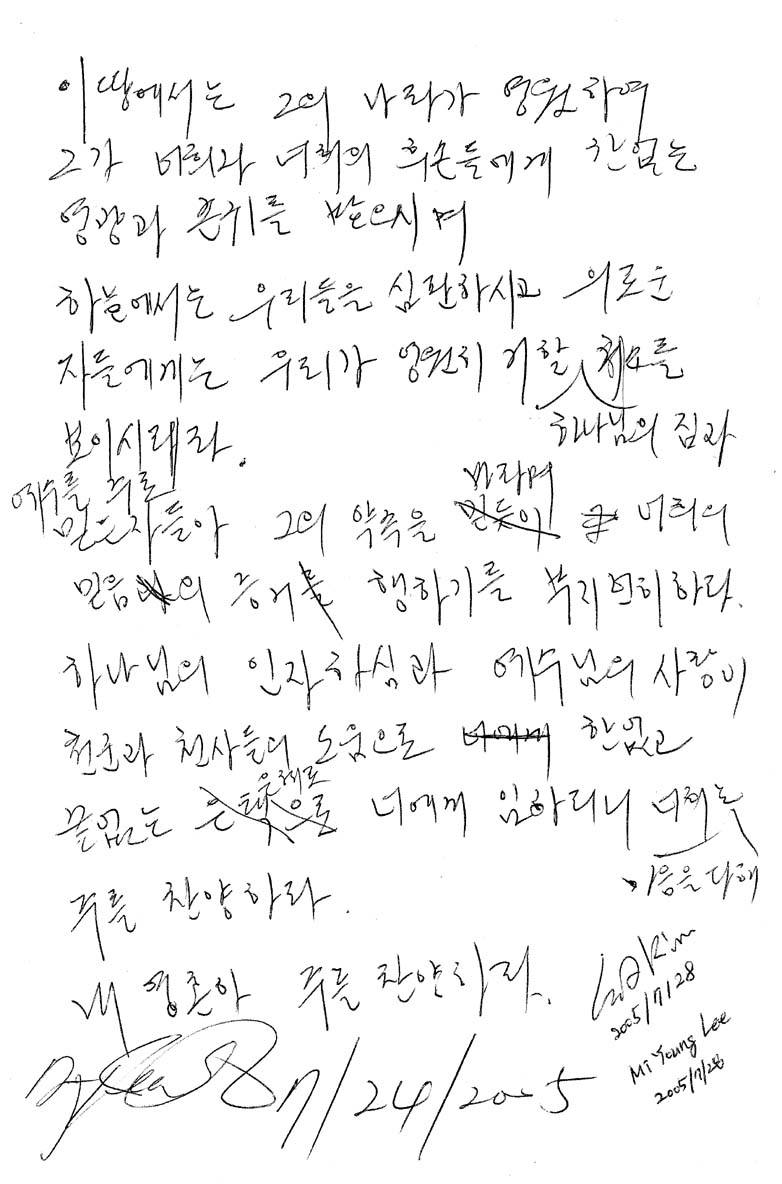 이 땅에서는 그의 나라가 영원하여
그가 너희와 너희의 후손들에게 한없는
영광과 존귀를 받으시며
하늘에서는 우리들을 심판하시고 의로운
자들에게는 우리가 영원히 거할 처소를
하나님의 집과
보이시리라.
예수를 주로
바라며
믿는 자들아 그의 약속을 믿듯이 너희의
믿음의 증거를 행하기를 부지런히하라.
하나님의 인자하심과 예수님의 사랑이
천군과 천사들의 도움으로 너에게 한없고
은혜로
끝없는 은택으로 너에게 임하리니 너희는
마음을 다해
주를 찬양하라.
내 영혼아 주를 찬양하라.
Kim
2005/7/28
Mi Young Lee
2005/7/28
7/24/2005